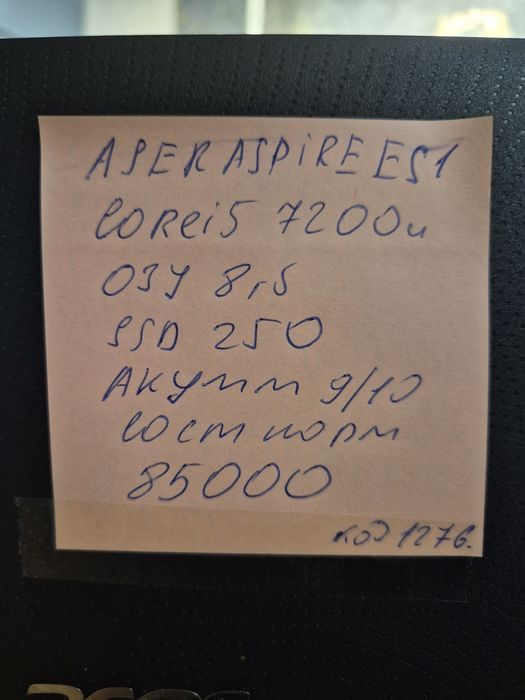 ASER ASPIRE ES1
Core i5 7200u
ОЗУ 8,5
SSD 250
Акумм 9/10
сост норм
85000
код 1276.
acer